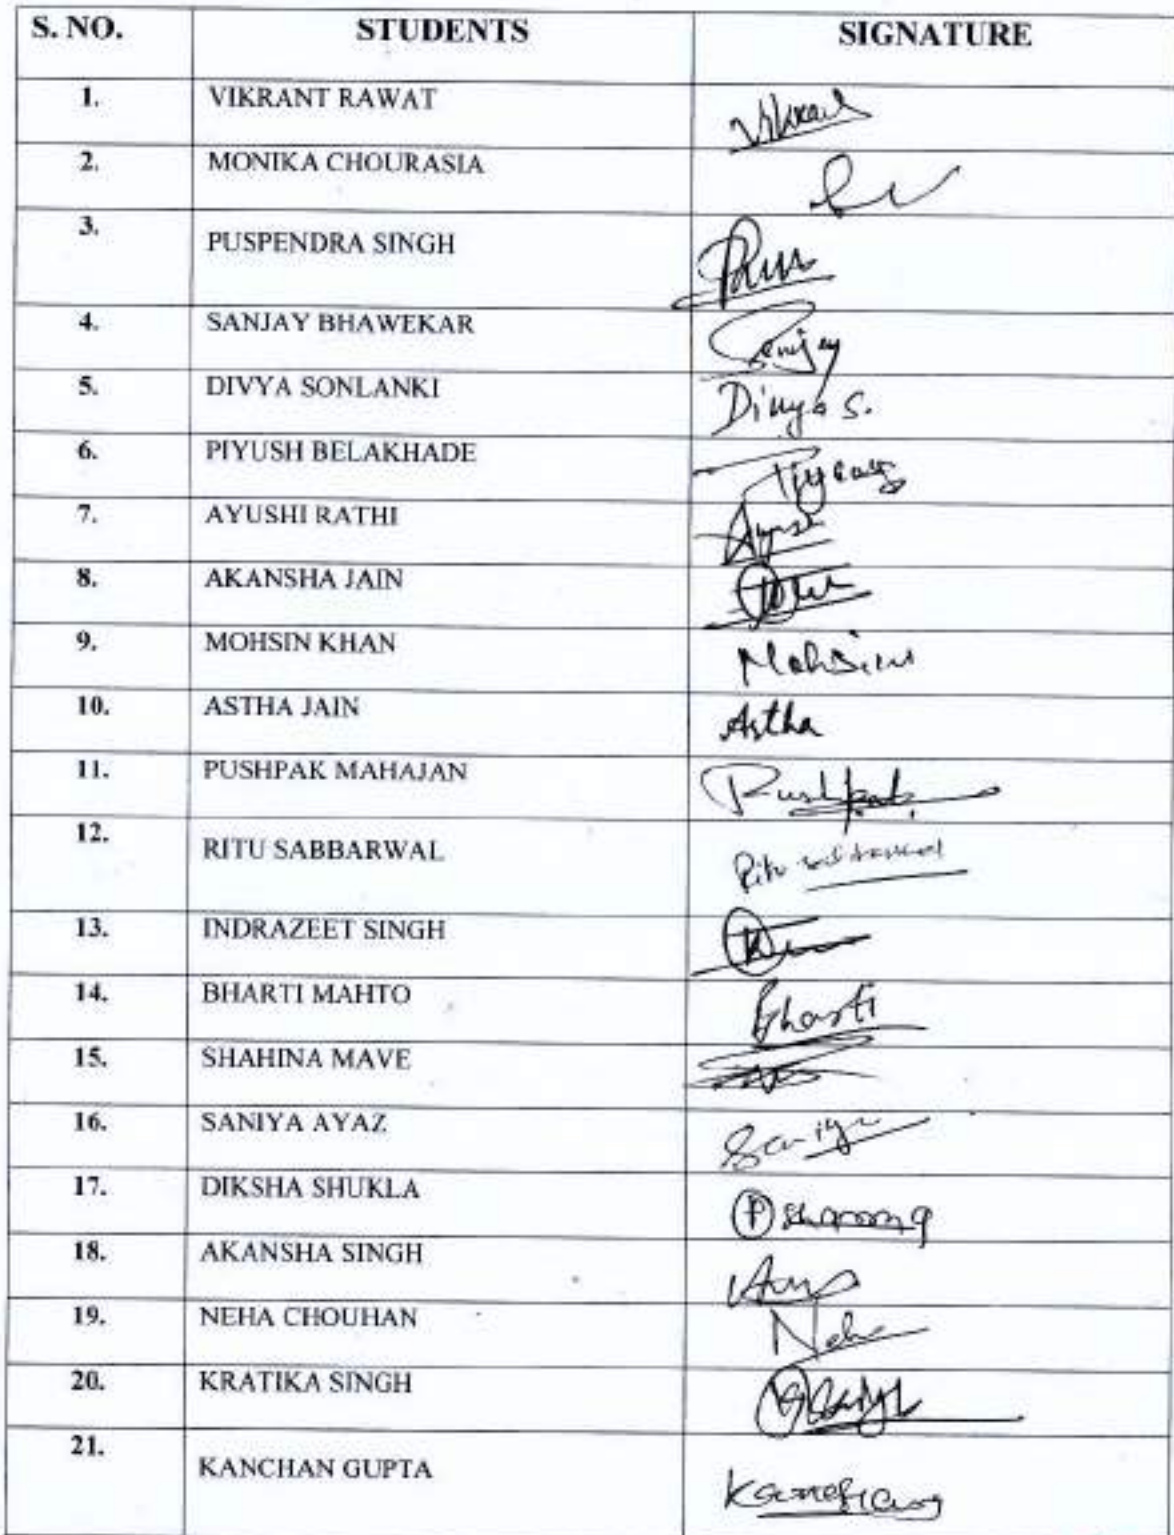 S. NO. STUDENTS SIGNATURE
1. VIKRANT RAWAT
2. MONIKA CHOURASIA
3. PUSPENDRA SINGH
4. SANJAY BHAWEKAR Sanjay
5. DIVYA SONLANKI Divya S.
6. PIYUSH BELAKHADE
7. AYUSHI RATHI
8. AKANSHA JAIN
9. MOHSIN KHAN Mohsin
10. ASTHA JAIN Astha
11. PUSHPAK MAHAJAN Pushpak
12. RITU SABBARWAL Ritu
13. INDRAZEET SINGH
14. BHARTI MAHTO Bharti
15. SHAHINA MAVE
16. SANIYA AYAZ Saniya
17. DIKSHA SHUKLA
18. AKANSHA SINGH
19. NEHA CHOUHAN Neha
20. KRATIKA SINGH
21. KANCHAN GUPTA